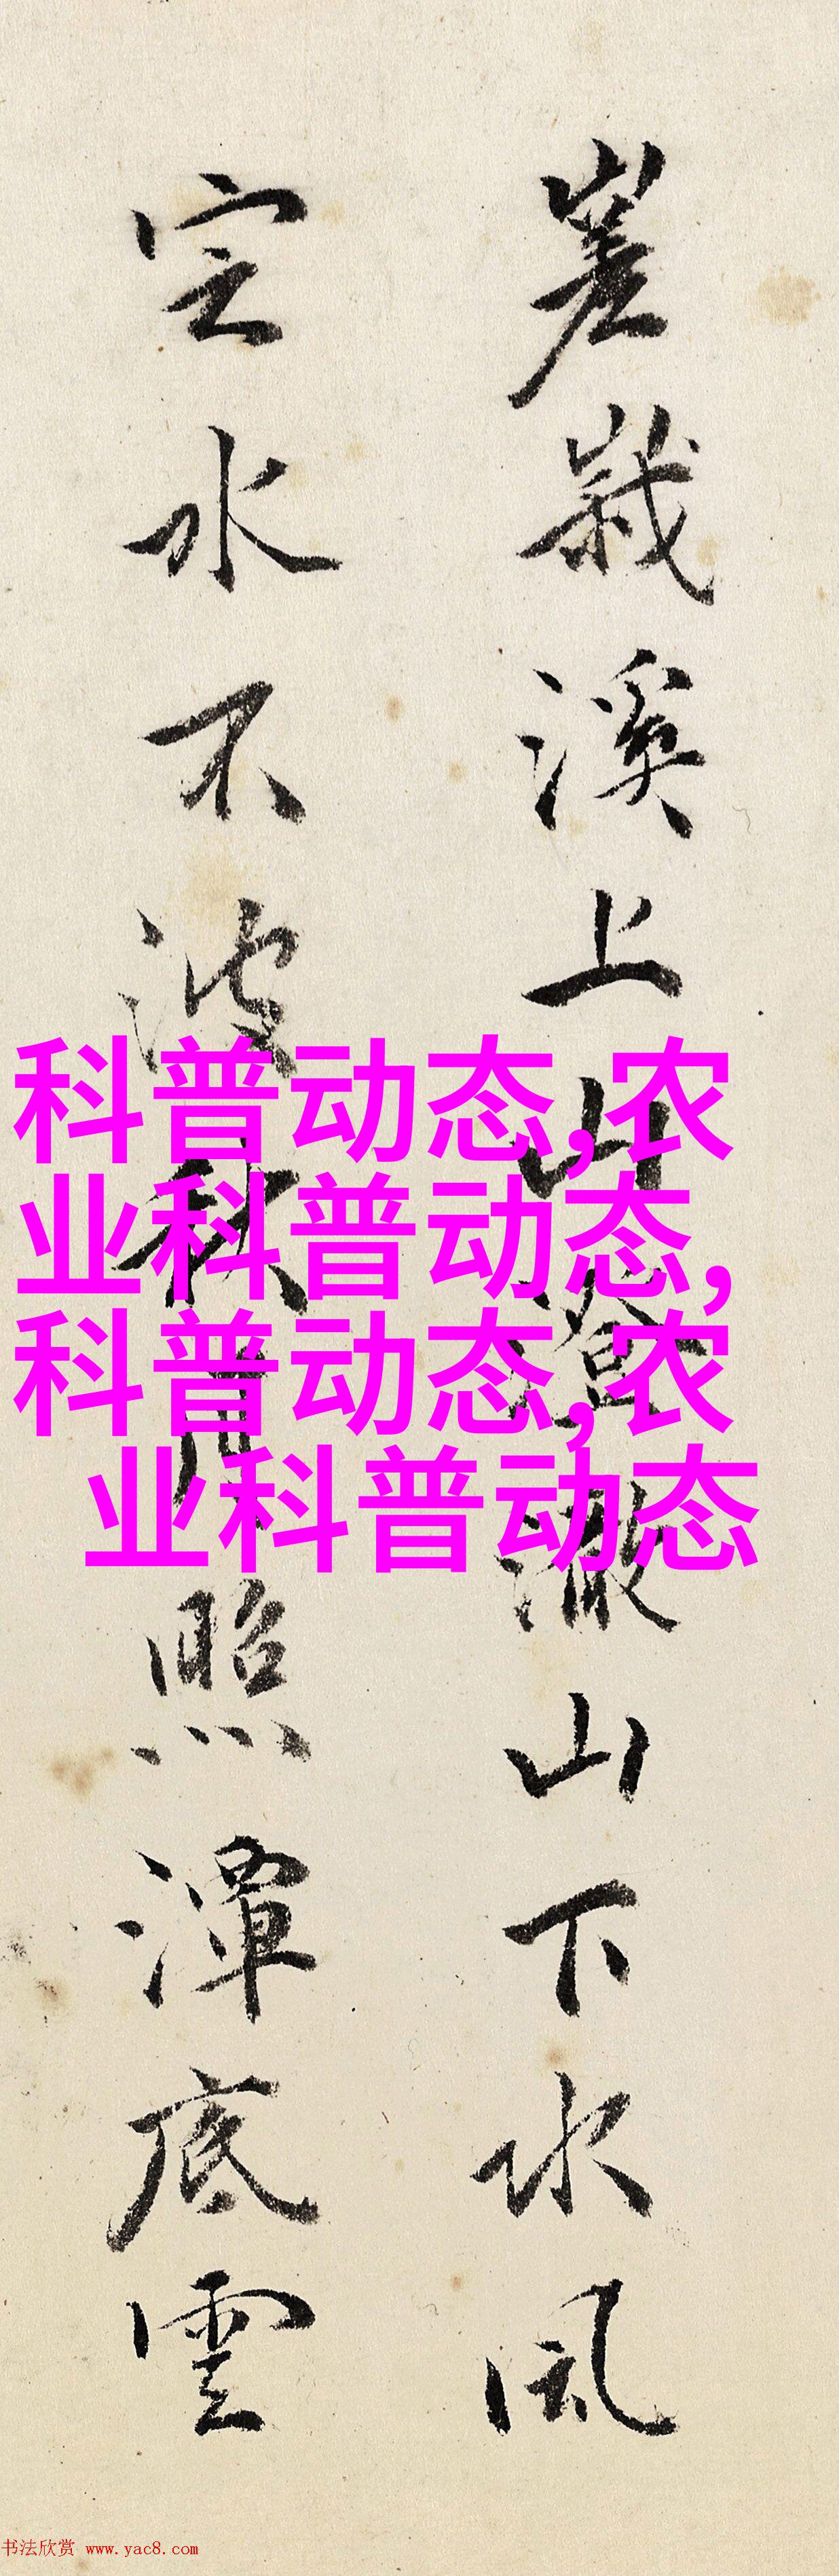 嵳峩溪上山澄澈山下水風
定水不波秋月照潭底雲
科普动态,农
业科普动态,
科普动态,农
业科普动态
书法欣赏 www.yac8.com